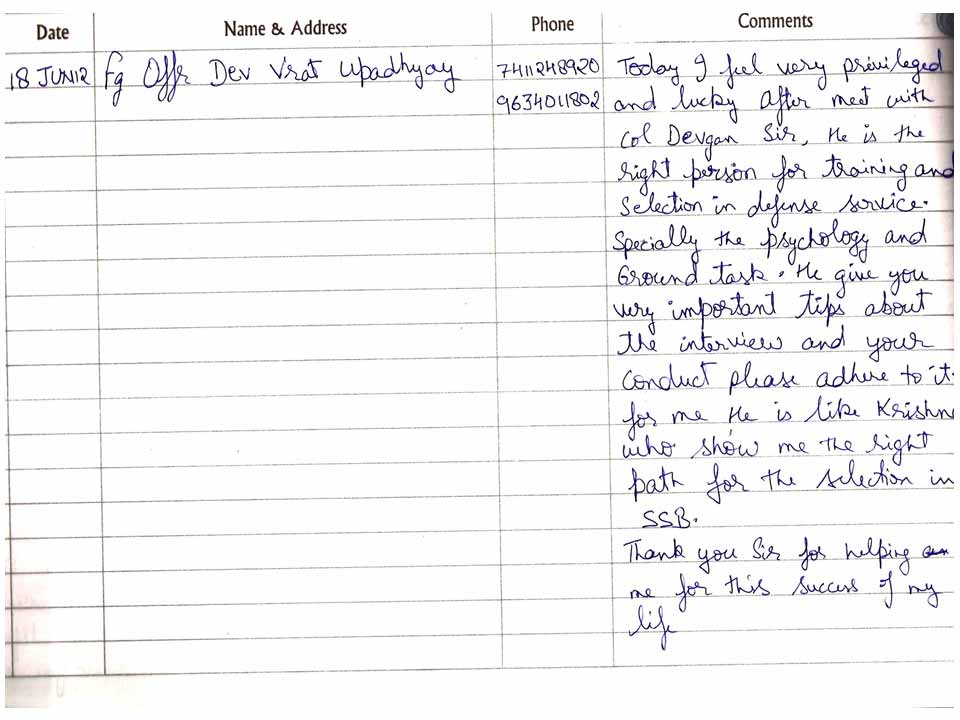 Date Name & Address Phone Comments
18 JUN12 Fg Offr Dev Vrat Upadhyay 7411248920 Today I feel very privileged
9634011802 and lucky after meet with
Col Devgan Sir, He is the
right person for training and
Selection in defense service.
Specially the psychology and
Ground task. He give you
very important tips about
the interview and your
conduct please adhere to it.
for me He is like Krishn
who show me the right
path for the selection in
SSB.
Thank you Sir for helping
me for this success of my
life